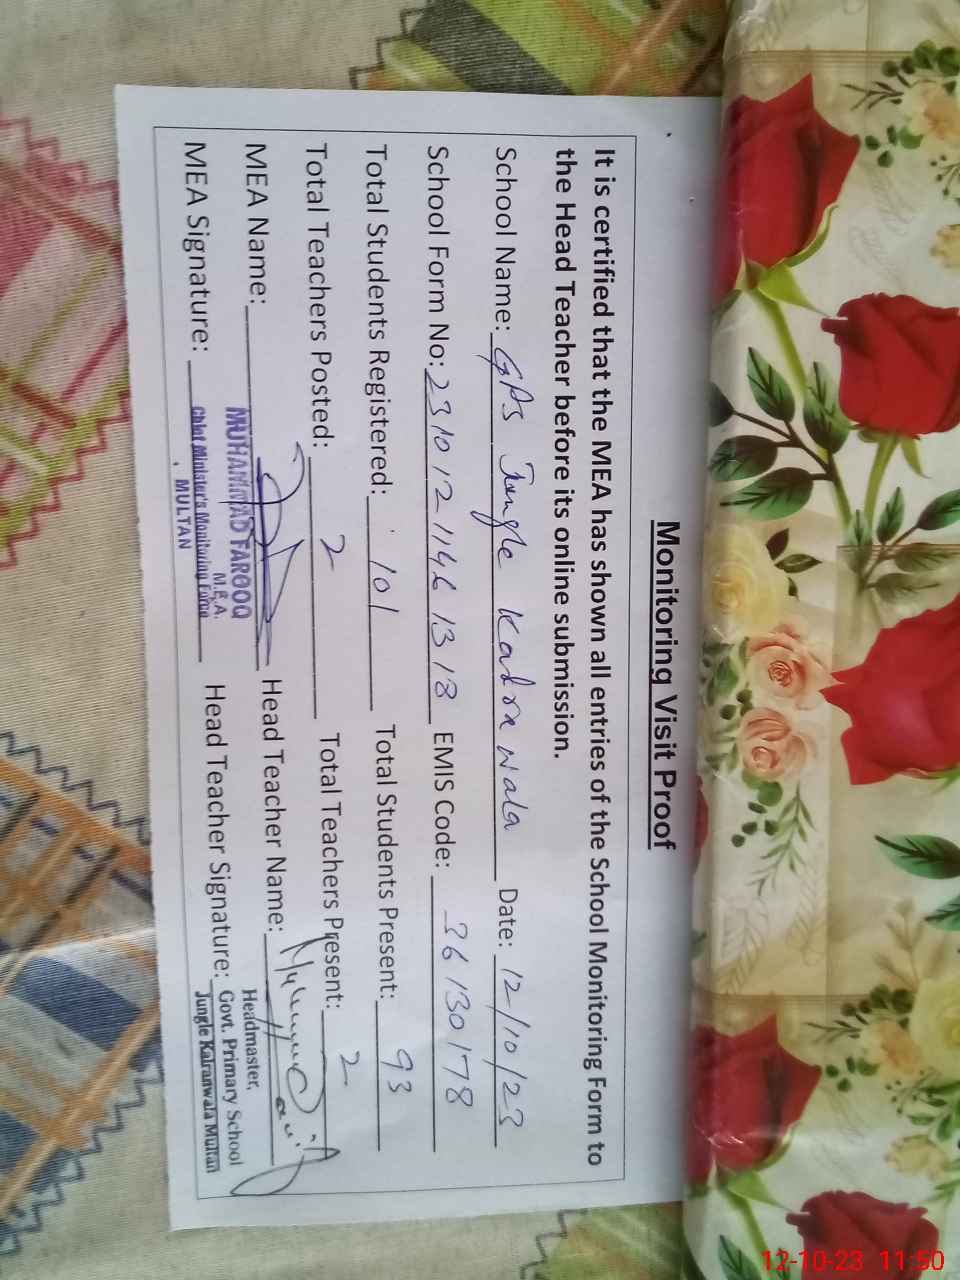 Monitoring Visit Proof
It is certified that the MEA has shown all entries of the School Monitoring Form to
the Head Teacher before its online submission.
School Name: GPS Jungle Kadra wala Date: 12/10/23
School Form No: 2310121146 1318 EMIS Code: 36130178
Total Students Registered: 101 Total Students Present: 93
Total Teachers Posted: 2 Total Teachers Present: 2
MEA Name: Head Teacher Name:
MUHAMMAD FAROOQ
M.E.A.
Chief Minister's Monitoring Force
MULTAN
MEA Signature: Head Teacher Signature:
Headmaster,
Govt. Primary School
Jungle Kalranwala Multan
12-10-23 11:50